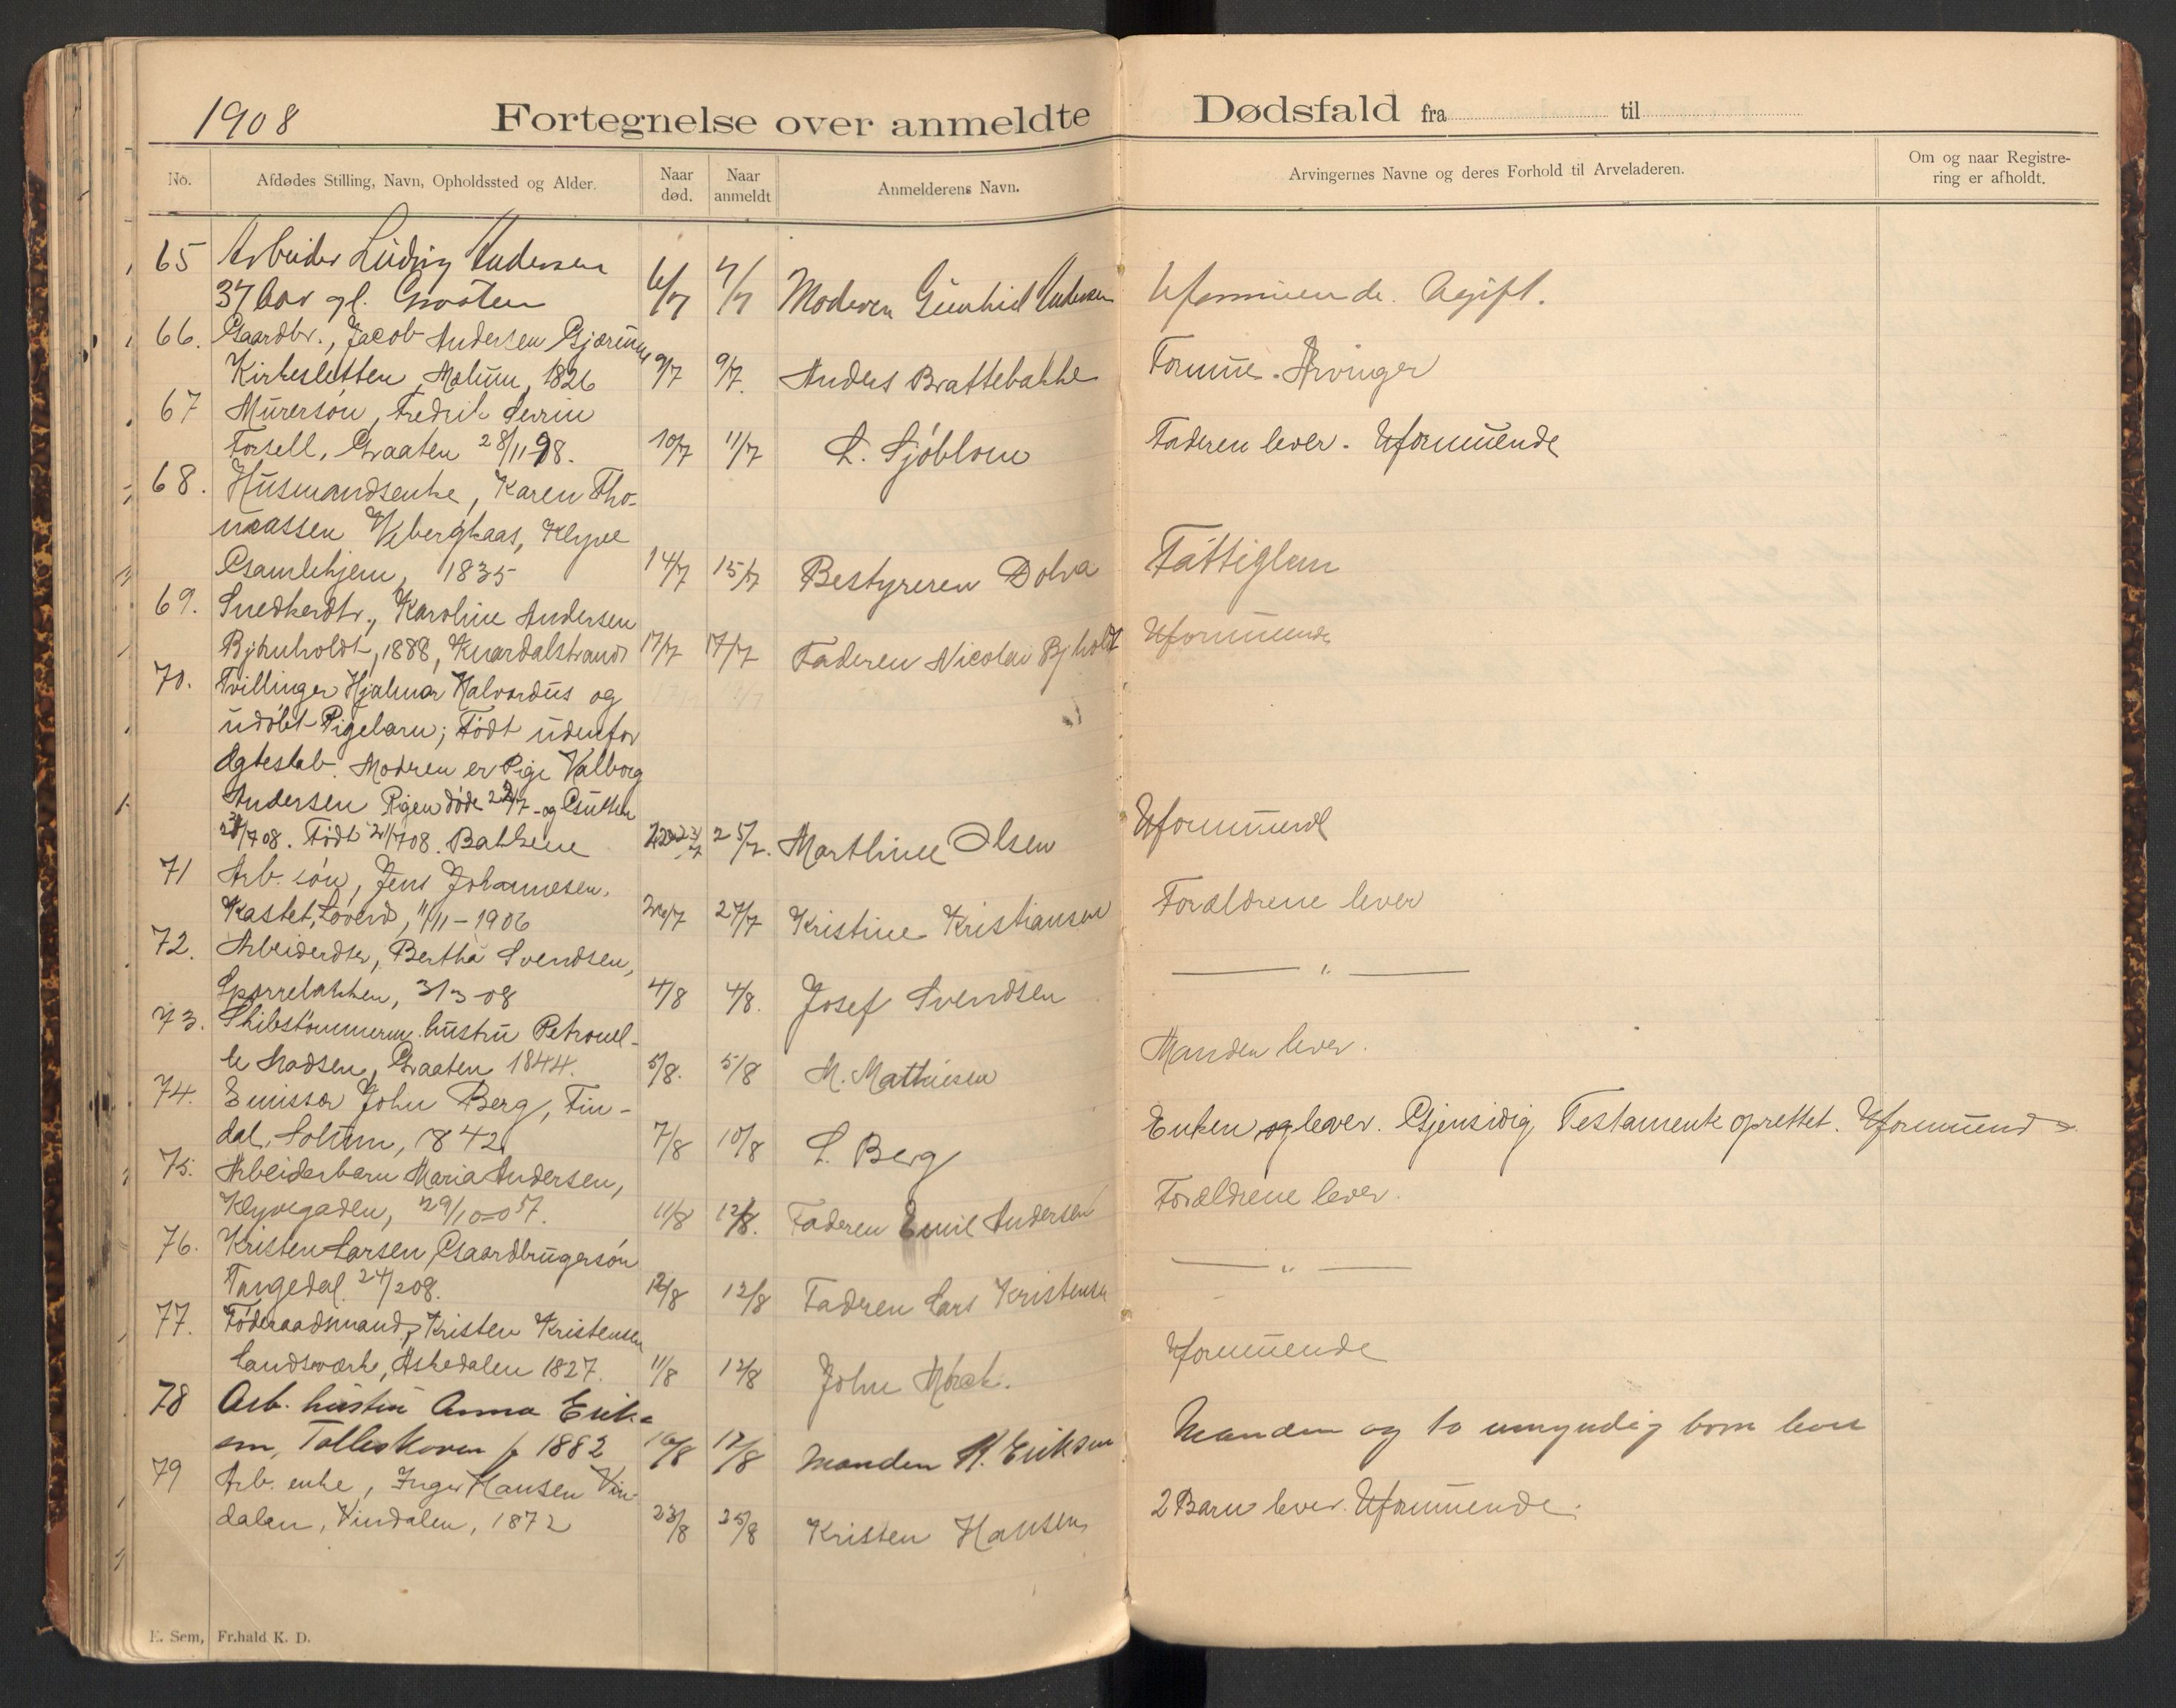 1908
Fortegnelse over anmeldte Dødsfald fra til
No. Afdødes Stilling, Navn, Opholdssted og Alder. Naar død. Naar anmeldt Anmelderens Navn. Arvingernes Navne og deres Forhold til Arveladeren. Om og naar Registrering er afholdt.
65 Arbeider Ludvig Andersen
37 aar gl. Graaten 6/7 7/7 Moderen Gunhild Andersen Uformuende. Ugift.
66. Gaardbr., Jacob Andersen Gjærum
Kirkesletten, Solum, 1826 9/7 9/7. Anders Brattebakke Formue. Arvinger
67 Murersøn, Fredrik
Forsell, Graaten 28/11-98. 10/7 11/7 L. Sjöblom Faderen lever. Uformuende
68. Husmandsenke, Karen Tho-
massen Kleven
Gamlehjem, 1835 14/7 15/7 Bestyreren Dolva Fattiglem
69. Snedkerdtr., Karoline Andersen
Bjønholdt, 1888, Knardalstrand 17/7 17/7 Faderen Nicolai Bjholdt Uformuende
70. Tvillinger Hjalmar Halvardus og
udøbt Pigebarn; Født udenfor
Ægteskab. Modren er Pige Valborg
Andersen Pigen døde 22/7 - og Gutten
23/7 08. Født 21/7 08. Bakkene 22 23/7 25/7. Marthine Olsen Uformuende
71 Arb. søn, Jens Johannesen.
Kastet, 11/11-1906 26/7 27/7 Kristine Kristiansen Forældrene lever
72. Arbeiderdtr, Bertha Svendsen,
Sporrebakken, 31/3-08 4/8 4/8. Josef Svendsen — " —
73. Skibstømmerm. hustru Petronel-
le Madsen, Graaten 1844. 5/8. 5/8 M. Mathiesen Manden lever.
74. Emissær John Berg, Fin-
dal, Solum, 1842 7/8 10/8 L. Berg Enken lever. Gjensidig Testamente oprettet. Uformuende
75. Arbeiderbarn Maria Andersen,
Klyvegaden, 29/10-07. 11/8 12/8. Faderen Emil Andersen Forældrene lever.
76. Kristen Larsen, Gaardbrugersøn
Tangedal. 24/2 08. 12/8 12/8 Fadren Lars Kristensen — " —
77. Føderaadsmand, Kristen Kristensen
Landsværk, Askedalen 1827. 11/8 12/8 John Mørch. Uformuende
78 Arb. hustru Anna Erik-
sen, Tolleskoven f 1882 16/8 17/8 Manden K. Eriksen Manden og to umyndig born lever
79 Arb. enke, Inger Hansen Vin-
dalen, Vindalen, 1872 23/8 25/8 Kristen Hansen 2 Barn lever. Uformuende.
E. Sem, Fr.hald K. D.